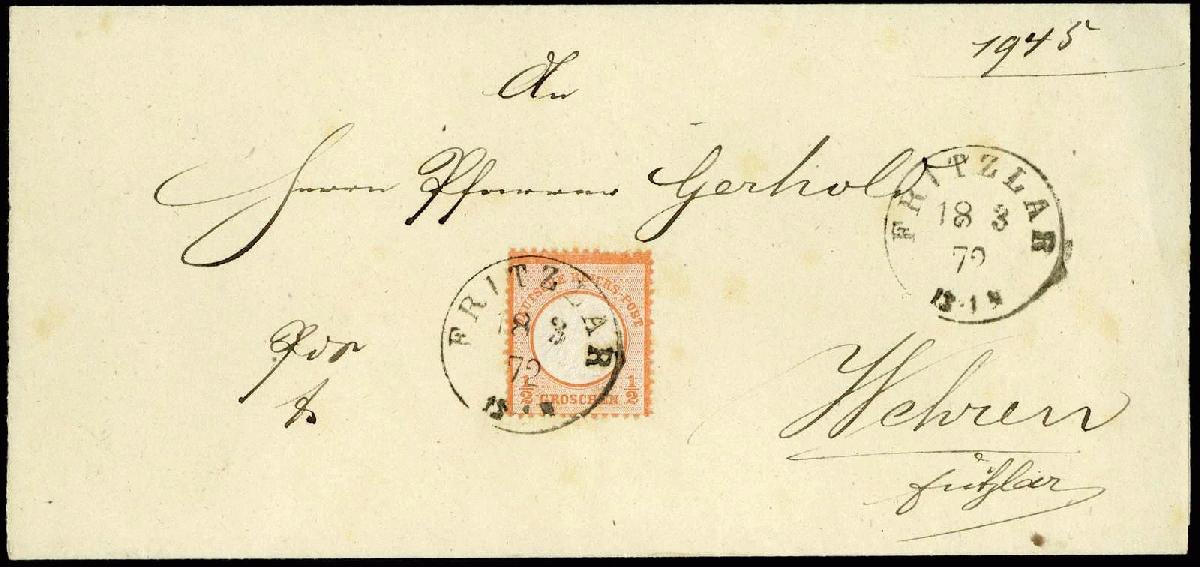 1945
An
Herrn Pfarrer Gerhold
FRITZLAR
18 3
72
12-1 N
DEUTSCHE REICHS-POST
1/2 GROSCHEN 1/2
FRITZLAR
18 3
72
12-1 N
Wehren
Fritzlar